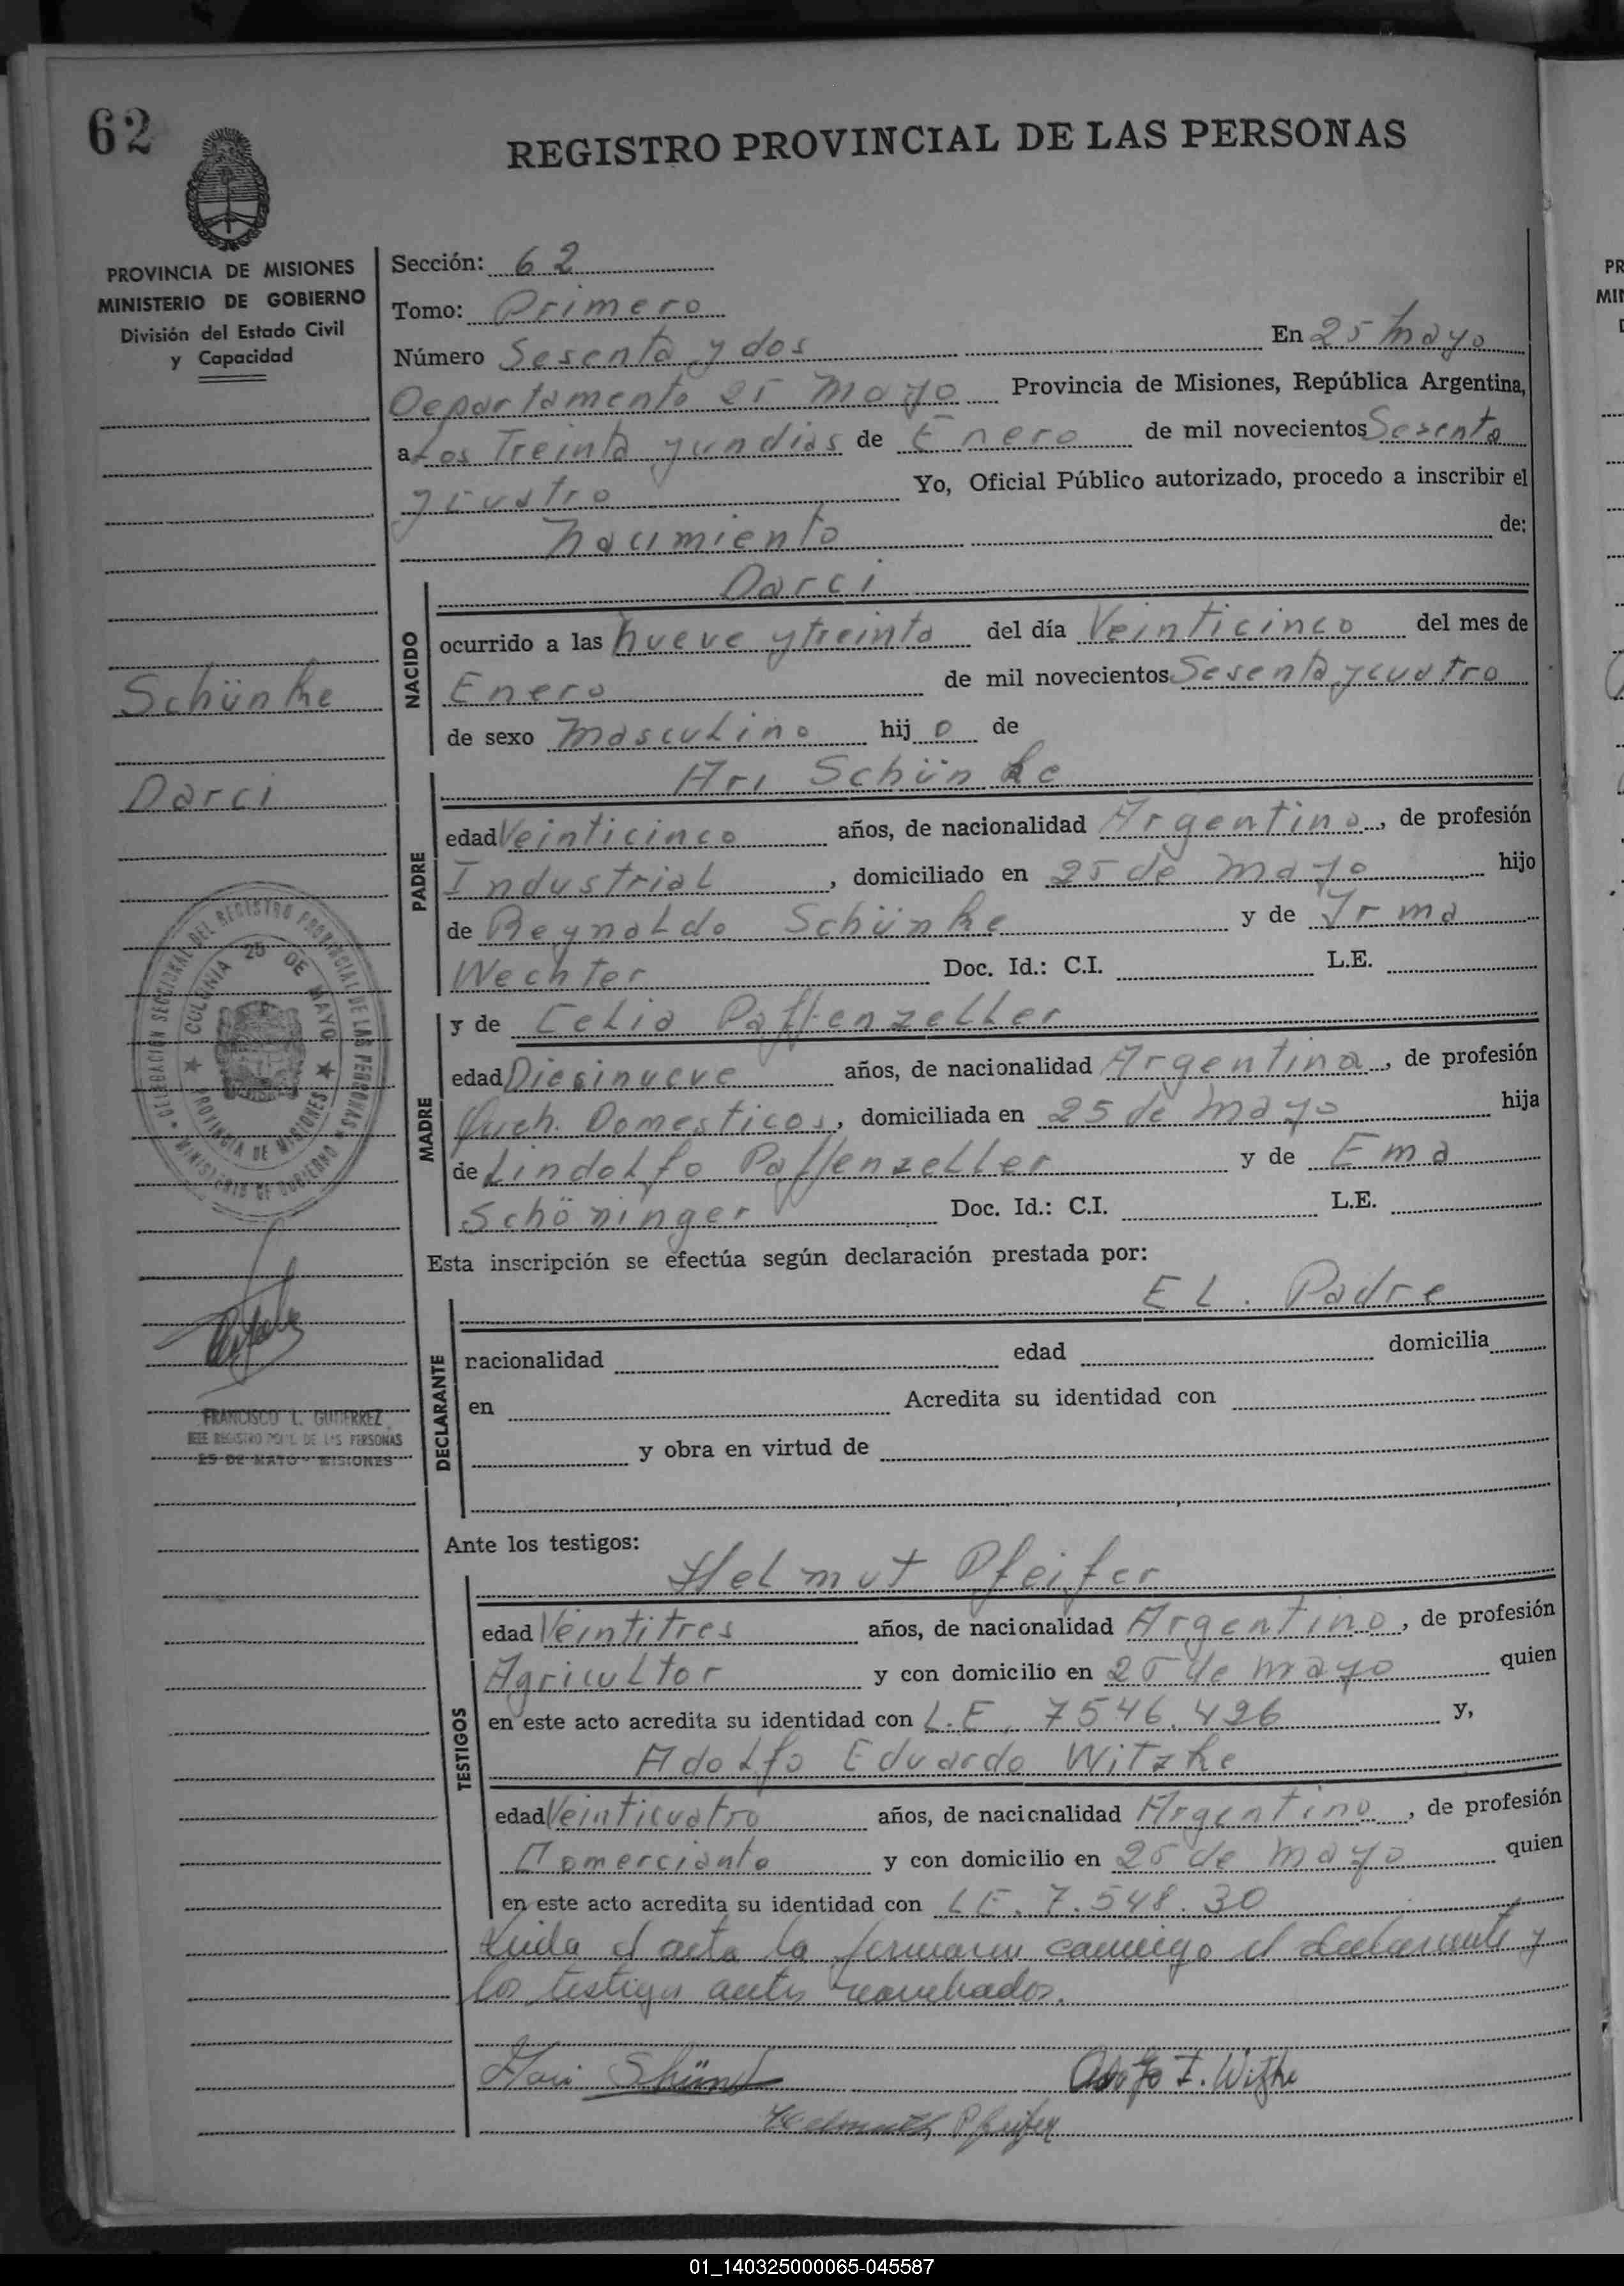 62
REGISTRO PROVINCIAL DE LAS PERSONAS
PROVINCIA DE MISIONES
MINISTERIO DE GOBIERNO
División del Estado Civil
y Capacidad
Schünke
Darci
DELEGACIÓN SECCIONAL DEL REGISTRO PROVINCIAL DE LAS PERSONAS
MINISTERIO DE GOBIERNO
COLONIA 25 DE MAYO
PROVINCIA DE MISIONES
FRANCISCO L. GUTIERREZ
JEFE REGISTRO PCIAL. DE LAS PERSONAS
25 DE MAYO - MISIONES
Sección: 62
Tomo: Primero
Número Sesenta y dos En 25 Mayo
Departamento 25 Mayo Provincia de Misiones, República Argentina,
a Los Treinta y un dias de Enero de mil novecientos Sesenta
y cuatro Yo, Oficial Público autorizado, procedo a inscribir el
Nacimiento de:
NACIDO
Darci
ocurrido a las nueve y treinta del día Veinticinco del mes de
Enero de mil novecientos Sesenta y cuatro
de sexo Masculino hij o de
PADRE
Ari Schünke
edad Veinticinco años, de nacionalidad Argentino, de profesión
Industrial, domiciliado en 25 de Mayo hijo
de Reynaldo Schünke y de Yrma
Wechter Doc. Id.: C.I. L.E.
MADRE
y de Celia Paffenzeller
edad Diesinueve años, de nacionalidad Argentina, de profesión
Queh. Domesticos, domiciliada en 25 de Mayo hija
de Lindolfo Paffenzeller y de Ema
Schöninger Doc. Id.: C.I. L.E.
Esta inscripción se efectúa según declaración prestada por:
DECLARANTE
EL. Padre
nacionalidad edad domicilia
en Acredita su identidad con
y obra en virtud de
Ante los testigos:
TESTIGOS
Helmut Pfeifer
edad Veintitres años, de nacionalidad Argentino, de profesión
Agricultor y con domicilio en 25 de Mayo quien
en este acto acredita su identidad con L.E. 7546.426 y,
Adolfo Eduardo Witzke
edad Veinticuatro años, de nacionalidad Argentino, de profesión
Comerciante y con domicilio en 25 de Mayo quien
en este acto acredita su identidad con LE. 7.548.30
Leida el acta la firmaron conmigo el declarante y
los testigos antes nombrados.
Adolfo E. Witzke
Pfeifer
01_140325000065-045587